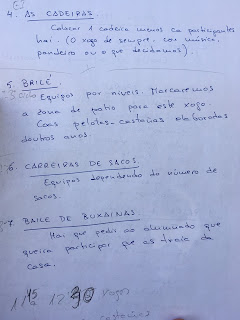 4. AS CADEIRAS...
Colocar 1 cadeira menos ca participantes
hai. (O xogo de sempre, con música,
pandeiro ou o que decidamos).
5. BRILÉ.
Equipos por niveis. Marcaremos
a zona de patio para este xogo.
Coas pelotas-castañas elaboradas
doutros anos.
6. CARREIRAS DE SACOS.
Equipos dependendo do número de
sacos.
7. BAILE DE BUXAINAS.
Hai que pedir ao alumnado que
queira participar que as traia da
casa.
castañas